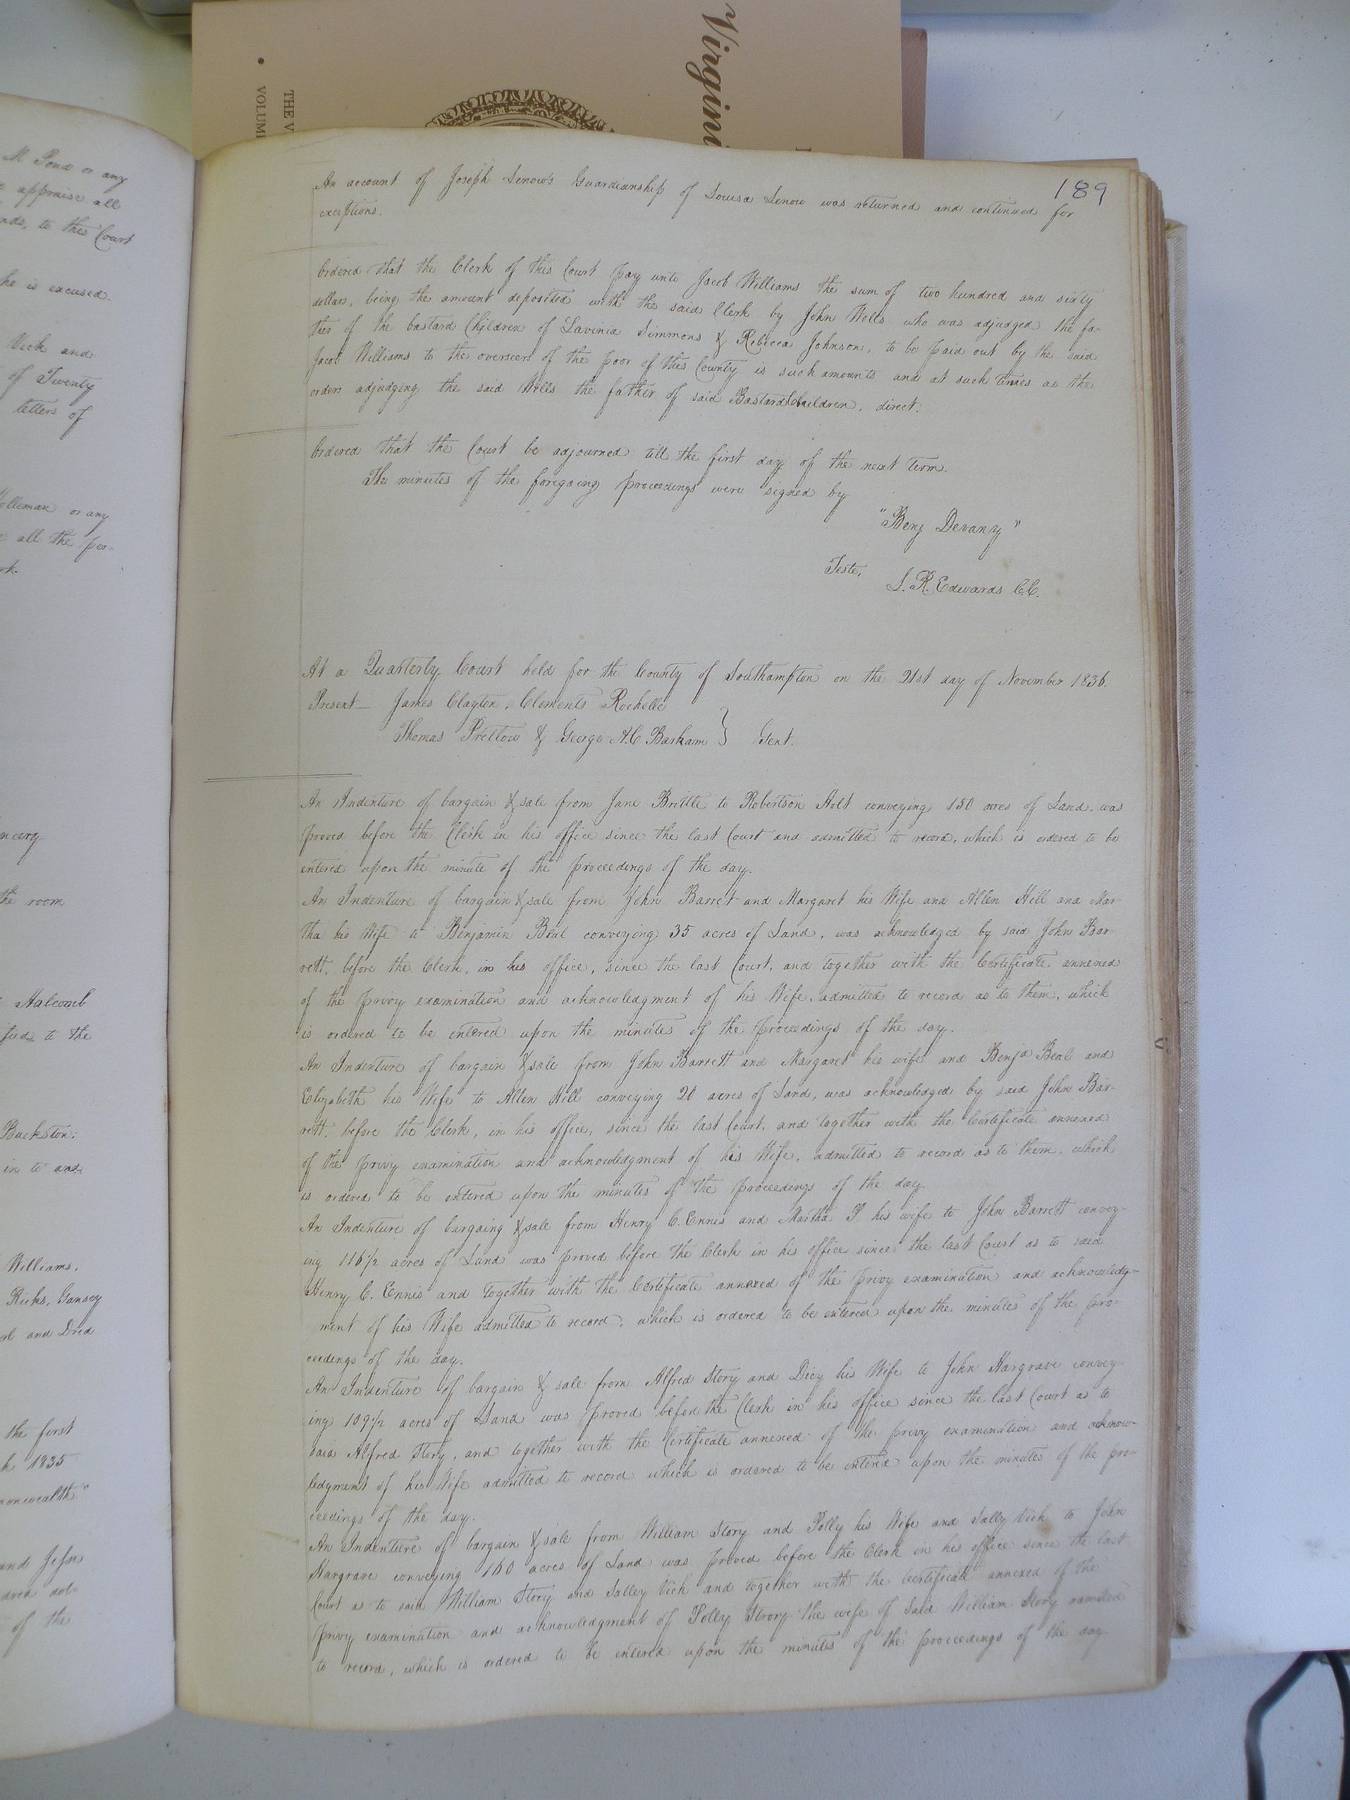 Virgini
THE V
VOLUM
M Pond or any
appraise all
to this Court
he is excused
Vick and
of Twenty
letters of
or any
all the per-
the room
Halcomb
to the
in to
Williams.
Ricks, Gansey
and Dred
the first
1835
monwealth"
and John
of the
189
An account of Joseph Lenow's Guardianship of Louisa Lenow was returned and continued for
exceptions.
Ordered that the Clerk of this Court pay unto Jacob Williams the sum of two hundred and sixty
dollars, being the amount deposited with the said Clerk by John Wells who was adjudged the fa-
ther of the bastard Children of Lavinia Simmons & Rebecca Johnson, to be paid out by the said
Jacob Williams to the overseers of the poor of this County is such amounts and at such times as the
orders adjudging the said Wells the father of said Bastard Children, direct.
Ordered that the Court be adjourned till the first day of the next term.
The minutes of the foregoing proceedings were signed by
"Benj Devany"
Teste,
L. R. Edwards C.C.
At a Quarterly Court held for the County of Southampton on the 21st day of November 1836.
Present James Clayton, Clements Rochelle
Thomas Pretlow & George A.C Barham } Gent.
An Indenture of bargain & sale from Jane Brittle to Robertson Holt conveying 150 acres of Land, was
proved before the Clerk in his office since the last Court and admitted to record, which is ordered to be
entered upon the minute of the proceedings of the day.
An Indenture of bargain & sale from John Barrett and Margaret his Wife and Allen Hill and Mar-
tha his Wife to Benjamin Beal conveying 35 acres of Land, was acknowledged by said John Bar-
rett, before the Clerk, in his office, since the last Court, and together with the Certificate annexed
of the privy examination and acknowledgment of his Wife, admitted to record as to them, which
is ordered to be entered upon the minutes of the proceedings of the day.
An Indenture of bargain & sale from John Barrett and Margaret his wife and Benja Beal and
Elizabeth his Wife to Allen Hill conveying 20 acres of Land, was acknowledged by said John Bar-
rett, before the Clerk, in his office, since the last Court, and together with the Certificate annexed
of the privy examination and acknowledgment of his Wife, admitted to record as to them, which
is ordered to be entered upon the minutes of the proceedings of the day
An Indenture of bargaing & sale from Henry C. Ennis and Martha P his wife to John Barrett convey-
ing 116½ acres of Land was proved before the Clerk in his office since the last Court as to said
Henry C. Ennis and together with the Certificate annexed of the privy examination and acknowledg-
ment of his Wife admitted to record, which is ordered to be entered upon the minutes of the pro-
ceedings of the day.
An Indenture of bargain & sale from Alfred Story and Dicy his Wife to John Hargrave convey-
ing 109½ acres of Land was proved before the Clerk in his office since the last Court as to
said Alfred Story, and together with the Certificate annexed of the privy examination and acknow-
ledgment of his Wife admitted to record which is ordered to be entered upon the minutes of the pro-
ceedings of the day.
An Indenture of bargain & sale from William Story and Polly his Wife and Sally Vick to John
Hargrave conveying 160 acres of Land was proved before the Clerk in his office since the last
Court as to said William Story and Salley Vick and together with the Certificate annexed of the
privy examination and acknowledgment of Polly Strory the wife of Said William Story
to record, which is ordered to be entered upon the minutes of the proceedings of the day